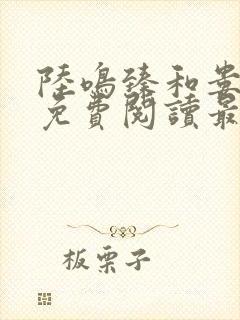 陸鳴臻和婁
免費閱讀最
板栗子